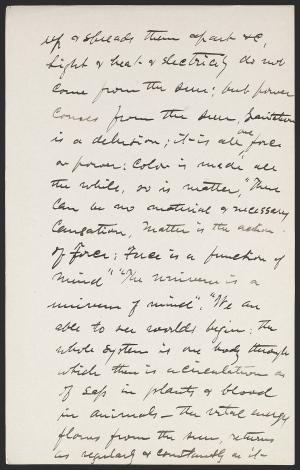 up & spreads them apart &c,
Light & heat & electricity do not
come from the sun; but power
comes from the sun, Gravitation
is a delusion; it is all one force
or power: Color is made all
the while, so is matter, "There
can be no material or necessary
Causation, Matter is the action
of Force: Force is a function of
mind" "The universe is a
universe of mind". "We are
able to see worlds begin: the
whole System is one body through
which there is a circulation as
of sap in plants & blood
in animals — the vital energy
flows from the sun, returns
as regularly & constantly as it